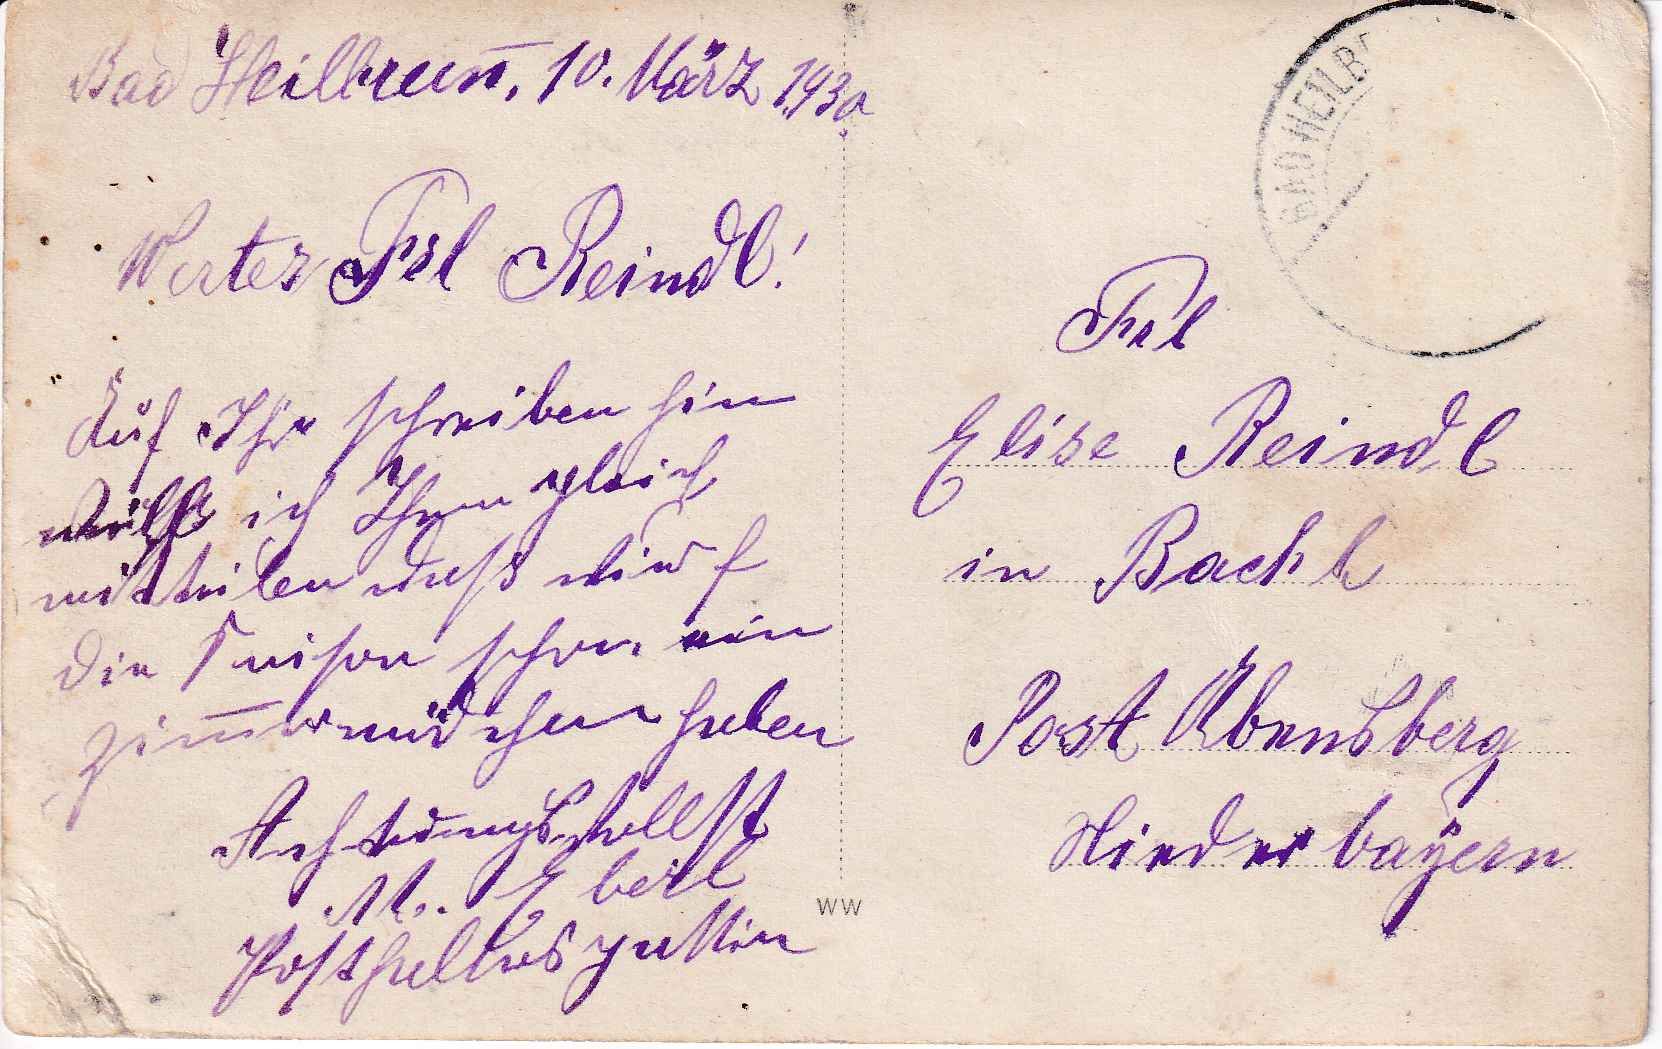 Bad Heilbrunn, 10. März 1930.
Wertes Frl Reindl!
Auf Ihr schreiben hin
will ich Ihnen gleich
mitteilen daß wir auf
die Saison schon ein
Zimmermädchen haben
Achtungsvollst
M. Eberl
Posthalters gattin
BAD HEILB
Frl
Elise Reindl
in Bachl
Post Abensberg
Niederbayern
WW